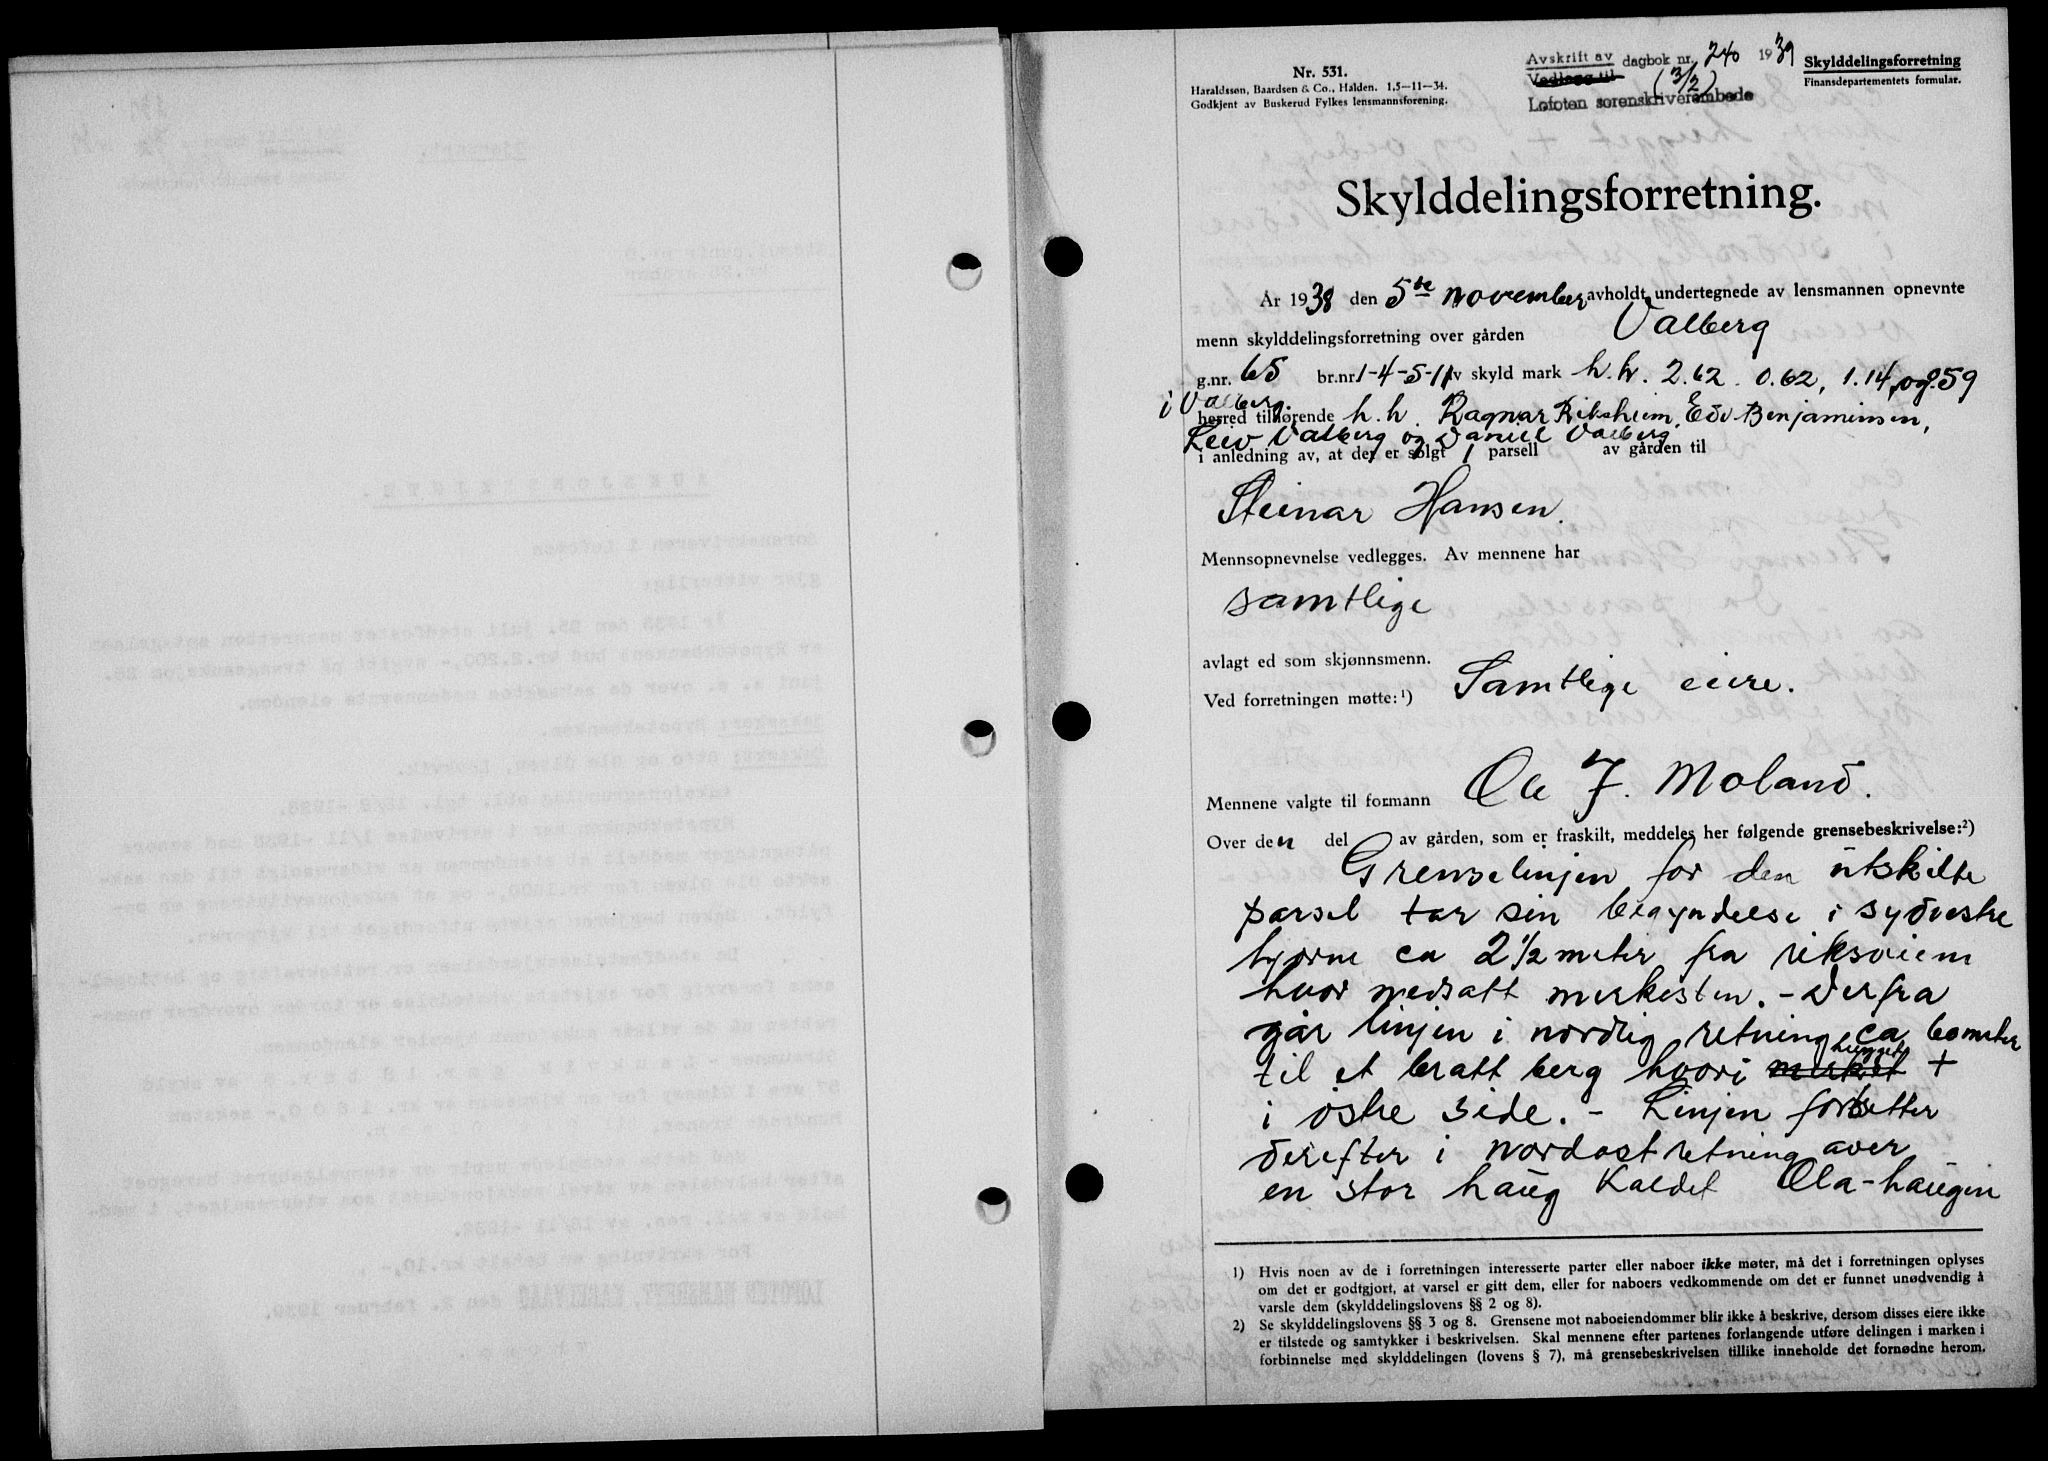 Nr. 531.
Haraldssøn, Baardsen & Co., Halden. 1.5—11—34.
Godkjent av Buskerud Fylkes lensmannsforening.
Avskrift av dagbok nr. 240 1939
Vedlegg til (3/2)
Lofoten sorenskriverembede
Skylddelingsforretning
Finansdepartementets formular.
Skylddelingsforretning.
År 1938 den 5te november avholdt undertegnede av lensmannen opnevnte
menn skylddelingsforretning over gården Valberg
g.nr. 65 br.nr 1-4-5-11 av skyld mark h.h. 2.62. 0.62, 1.14, og 0.59
i Valberg
herred tilhørende h.h. Ragnar Riksheim, Edv Benjaminsen,
Leiv Valberg og Daniel Valberg
i anledning av, at der er solgt 1 parsell av gården til
Steinar Hansen.
Mennsopnevnelse vedlegges. Av mennene har
samtlige
avlagt ed som skjønnsmenn.
Ved forretningen møtte:¹) Samtlige eiere.
Mennene valgte til formann Ole J. Moland.
Over den del av gården, som er fraskilt, meddeles her følgende grensebeskrivelse:²)
Grenselinjen for den utskilte
parsel tar sin begyndelse i sydvestre
hjørne ca 2 1/2 meter fra riksveien
hvor nedsatt merkesten. - Derfra
går linjen i nordlig retning ca 60 meter
til et bratt berg hvori merket hugget +
i østre side. - Linjen fortsetter
derefter i nordost retning over
en stor haug kaldet Ola-haugen
1) Hvis noen av de i forretningen interesserte parter eller naboer ikke møter, må det i forretningen oplyses
om det er godtgjort, at varsel er gitt dem, eller for naboers vedkommende om det er funnet unødvendig å
varsle dem (skylddelingslovens §§ 2 og 8).
2) Se skylddelingslovens §§ 3 og 8. Grensene mot naboeiendommer blir ikke å beskrive, dersom disses eiere ikke
er tilstede og samtykker i beskrivelsen. Skal mennene efter partenes forlangende utføre delingen i marken i
forbinnelse med skylddelingen (lovens § 7), må grensebeskrivelsen tillike inneholde det fornødne herom.